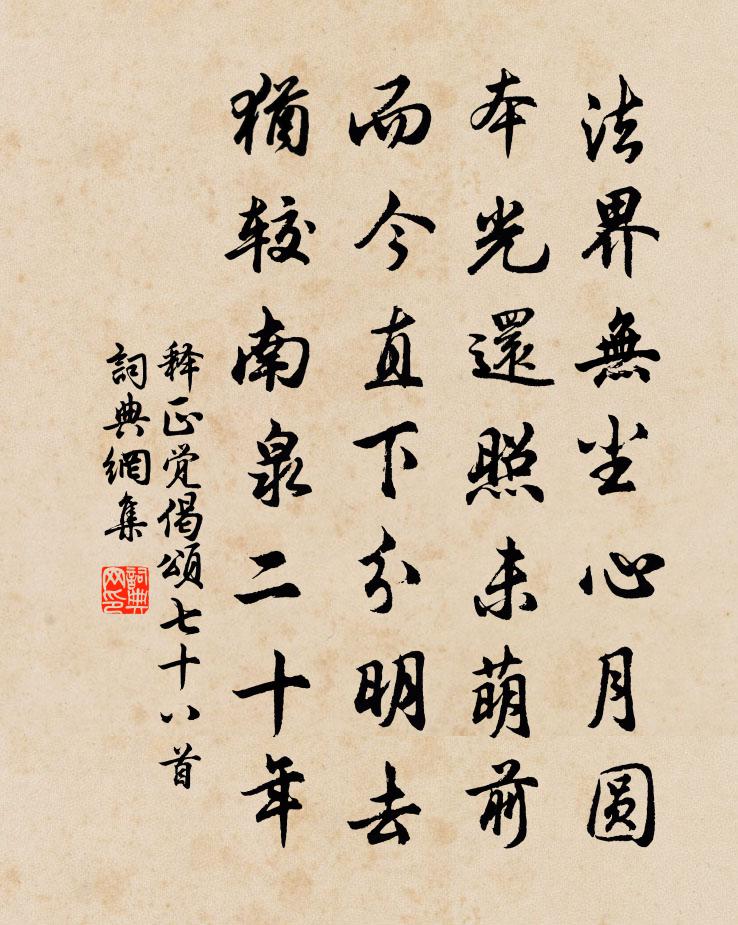 法界無尘心月圆
本光還照未萌前
而今直下分明去
猶较南泉二十年
释正觉偈頌七十八首
詞典網集
詞典网印